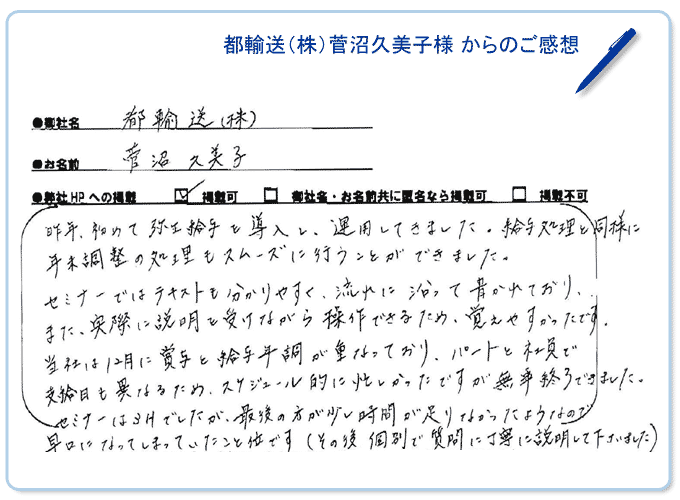 都輸送（株）菅沼久美子様 からのご感想
●御社名 都輸送(株)
●お名前 菅沼 久美子
●弊社HPへの掲載 掲載可 御社名・お名前共に匿名なら掲載可 掲載不可
昨年、初めて弥生給与を導入し、運用してきました。給与処理と同様に
年末調整の処理もスムーズに行うことができました。
セミナーではテキストも分かりやすく、流れに沿って書かれており、
また、実際に説明を受けながら操作できるため、覚えやすかったです。
当社は12月に賞与と給与年調が重なっており、パートと社員で
支給日も異なるため、スケジュール的に忙しかったですが無事終了できました。
セミナーは3Hでしたが、最後の方が少し時間が足りなかったようなので
早口になってしまっていたこと位です(その後個別で質問に丁寧に説明して下さいました)